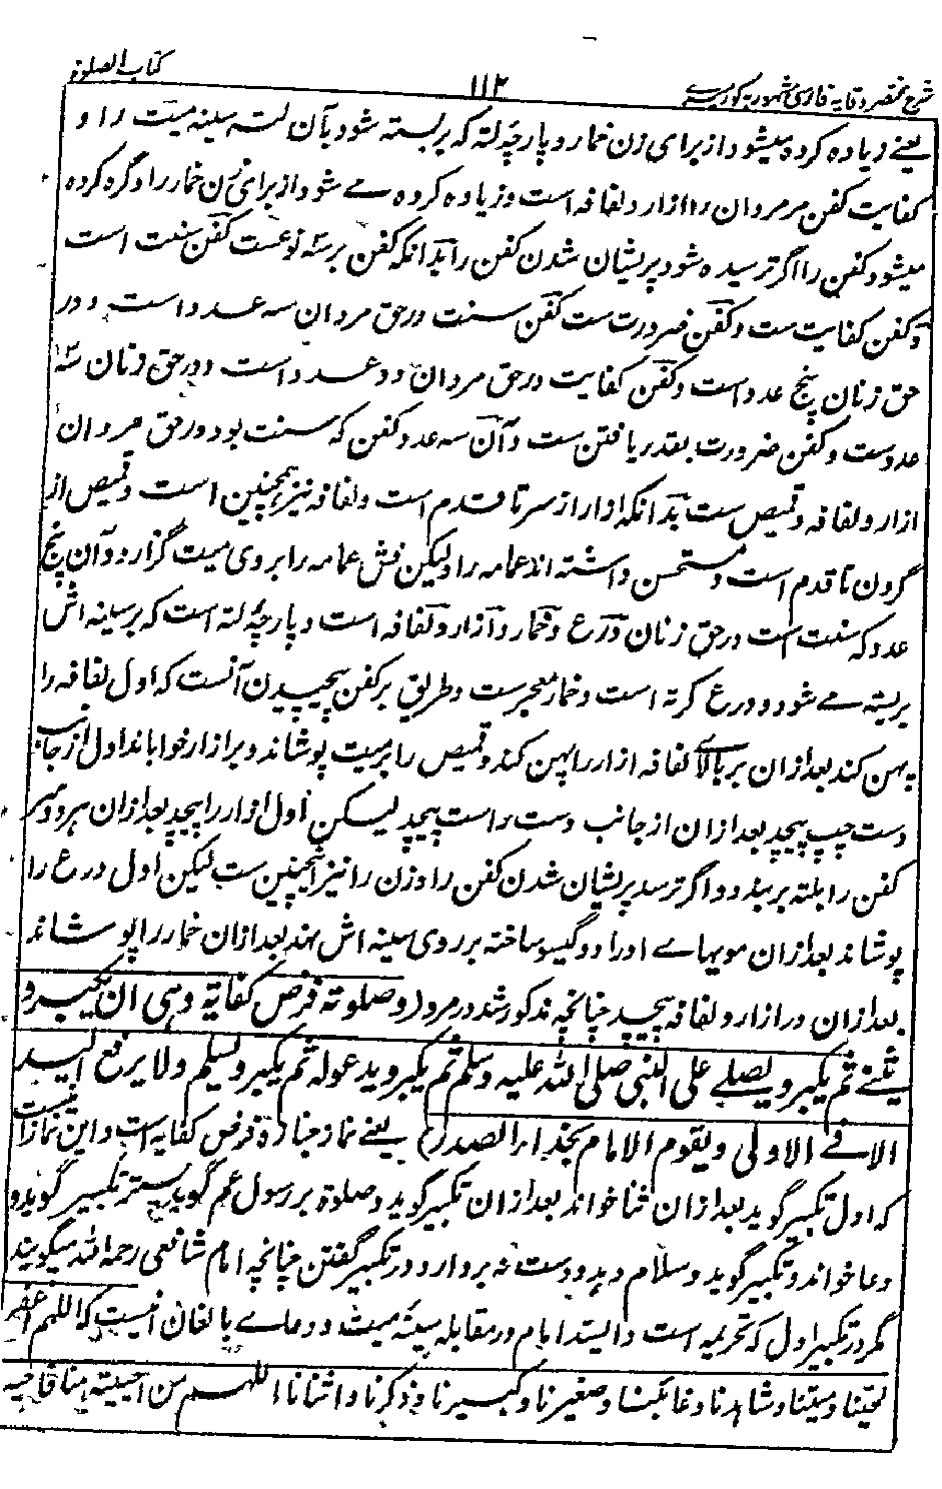 شرح مختصر وقایه فارسی مشهور به کورسیری
۱۱۲
کتاب الصلوة
یعنے زیاده کرده میشود از برای زن خمار و پارچهٔ لته که بر بسته شود بآن لته سینه میت را و
کفایت کفن مر مردان را ازار و لفافه است و زیاده کرده مے شود از برای زن خمار را و گره کرده
میشود کفن را اگر ترسیده شود پریشان شدن کفن را بدانکه کفن بر سه نوعست کفن سنت است
و کفن کفایت ست و کفن ضرورت ست کفن سنت در حق مردان سه عدد است و در
حق زنان پنج عدد است و کفن کفایت در حق مردان دو عدد است و در حق زنان سه
عدد ست و کفن ضرورت بقدر یافتن ست و آن سه عدد کفن که سنت بود در حق مردان
ازار و لفافه و قمیص ست بدانکه ازار از سر تا قدم است و لفافه نیز همچنین است و قمیص از
گردن تا قدم است و مستحسن داشته اند عمامه را و لیکن فش عمامه را بروی میت گزارد و آن پنج
عدد که سنت است در حق زنان درع و خمار و ازار و لفافه است و پارچهٔ لته است که بر سینه اش
بربسته مے شود و درع کرته است و خمار معجرست و طریق بر کفن پیچیدن آنست که اول لفافه را
پهن کند بعد ازان بر بالاے لفافه ازار را پهن کند و قمیص را بر میت پوشاند و بر ازار خواباند اول از جانب
دست چپ پیچد بعد ازان از جانب دست راست پیچد لیکن اول ازار را پیچد بعد ازان هر دو سر
کفن را بلته بر بندد و اگر ترسد پریشان شدن کفن را و زن را نیز همچنین ست لیکن اول درع را
پوشاند بعد ازان مویهاے او را دو گیسو ساخته بر روی سینه اش نهد بعد ازان خمار را پوشاند
بعد ازان در ازار و لفافه پیچد چنانچه مذکور شد در مرد (وصلوته فرض کفایة وهی ان یکبر و
یثنے ثم یکبر و یصلے علی النبی صلی الله علیه وسلم ثم یکبر و یدعو له ثم یکبر و یسلم ولا یرفع الید
الا فے الاولی ویقوم الامام بحذاء الصدر) یعنے نماز جنازه فرض کفایه است و این نماز آنست
که اول تکبیر گوید بعد ازان ثنا خواند بعد ازان تکبیر گوید و صلوة بر رسول عم گوید پستر تکبیر گوید و
دعا خواند و تکبیر گوید و سلام دهد و دست نه بردارد در تکبیر گفتن چنانچه امام شافعی رحمه الله میگویند
مگر در تکبیر اول که تحریمه است و ایستد امام در مقابله سینهٔ میت و دعاے بالغان اینست که اللهم اغفر
لحینا ومیتنا وشاهدنا وغائبنا وصغیرنا وکبیرنا وذکرنا وانثانا اللهم من احییته منا فاحیه